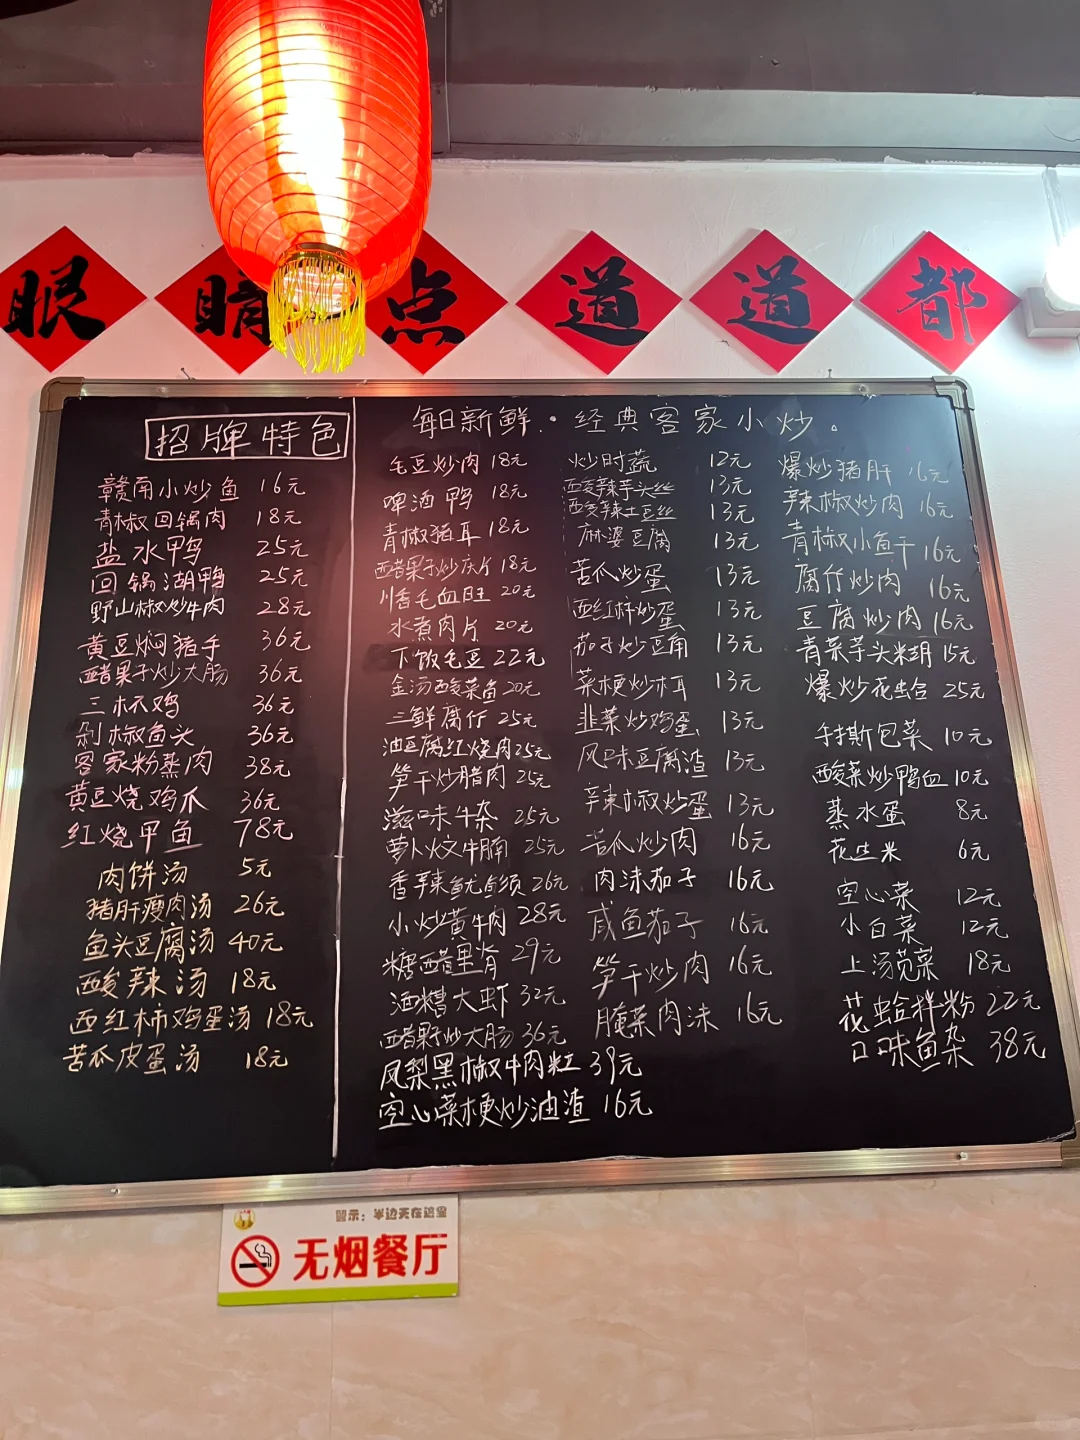 眼 睛 点 道 道 都
招牌特色
赣南小炒鱼 16元
青椒回锅肉 18元
盐水鸭 25元
回锅湖鸭 25元
野山椒炒牛肉 28元
黄豆焖猪手 36元
醋果子炒大肠 36元
三杯鸡 36元
剁椒鱼头 36元
客家粉蒸肉 38元
黄豆烧鸡爪 36元
红烧甲鱼 78元
肉饼汤 5元
猪肝瘦肉汤 26元
鱼头豆腐汤 40元
酸辣汤 18元
西红柿鸡蛋汤 18元
苦瓜皮蛋汤 18元
每日新鲜·经典客家小炒。
毛豆炒肉 18元
啤酒鸭 18元
青椒猪耳 18元
醋果子炒灰片 18元
川香毛血旺 20元
水煮肉片 20元
下饭毛豆 22元
金汤酸菜鱼 20元
三鲜腐竹 25元
油豆腐红烧肉 25元
笋干炒腊肉 25元
滋味牛杂 25元
萝卜炆牛腩 25元
香辣鱿鱼须 26元
小炒黄牛肉 28元
糖醋里脊 29元
酒糟大虾 32元
醋果子炒大肠 36元
凤梨黑椒牛肉粒 39元
空心菜梗炒油渣 16元
炒时蔬 12元
酸辣芋头丝 13元
酸辣土豆丝 13元
麻婆豆腐 13元
苦瓜炒蛋 13元
西红柿炒蛋 13元
茄子炒豆角 13元
菜梗炒木耳 13元
韭菜炒鸡蛋 13元
风味豆腐渣 13元
辣椒炒蛋 13元
苦瓜炒肉 16元
肉沫茄子 16元
咸鱼茄子 16元
笋干炒肉 16元
腌菜肉沫 16元
爆炒猪肝 16元
辣椒炒肉 16元
青椒小鱼干 16元
腐竹炒肉 16元
豆腐炒肉 16元
青菜芋头糊 15元
爆炒花蛤 25元
手撕包菜 10元
酸菜炒鸭血 10元
蒸水蛋 8元
花生米 6元
空心菜 12元
小白菜 12元
上汤苋菜 18元
花蛤拌粉 22元
口味鱼杂 38元
警示：半边天在这里
无烟餐厅